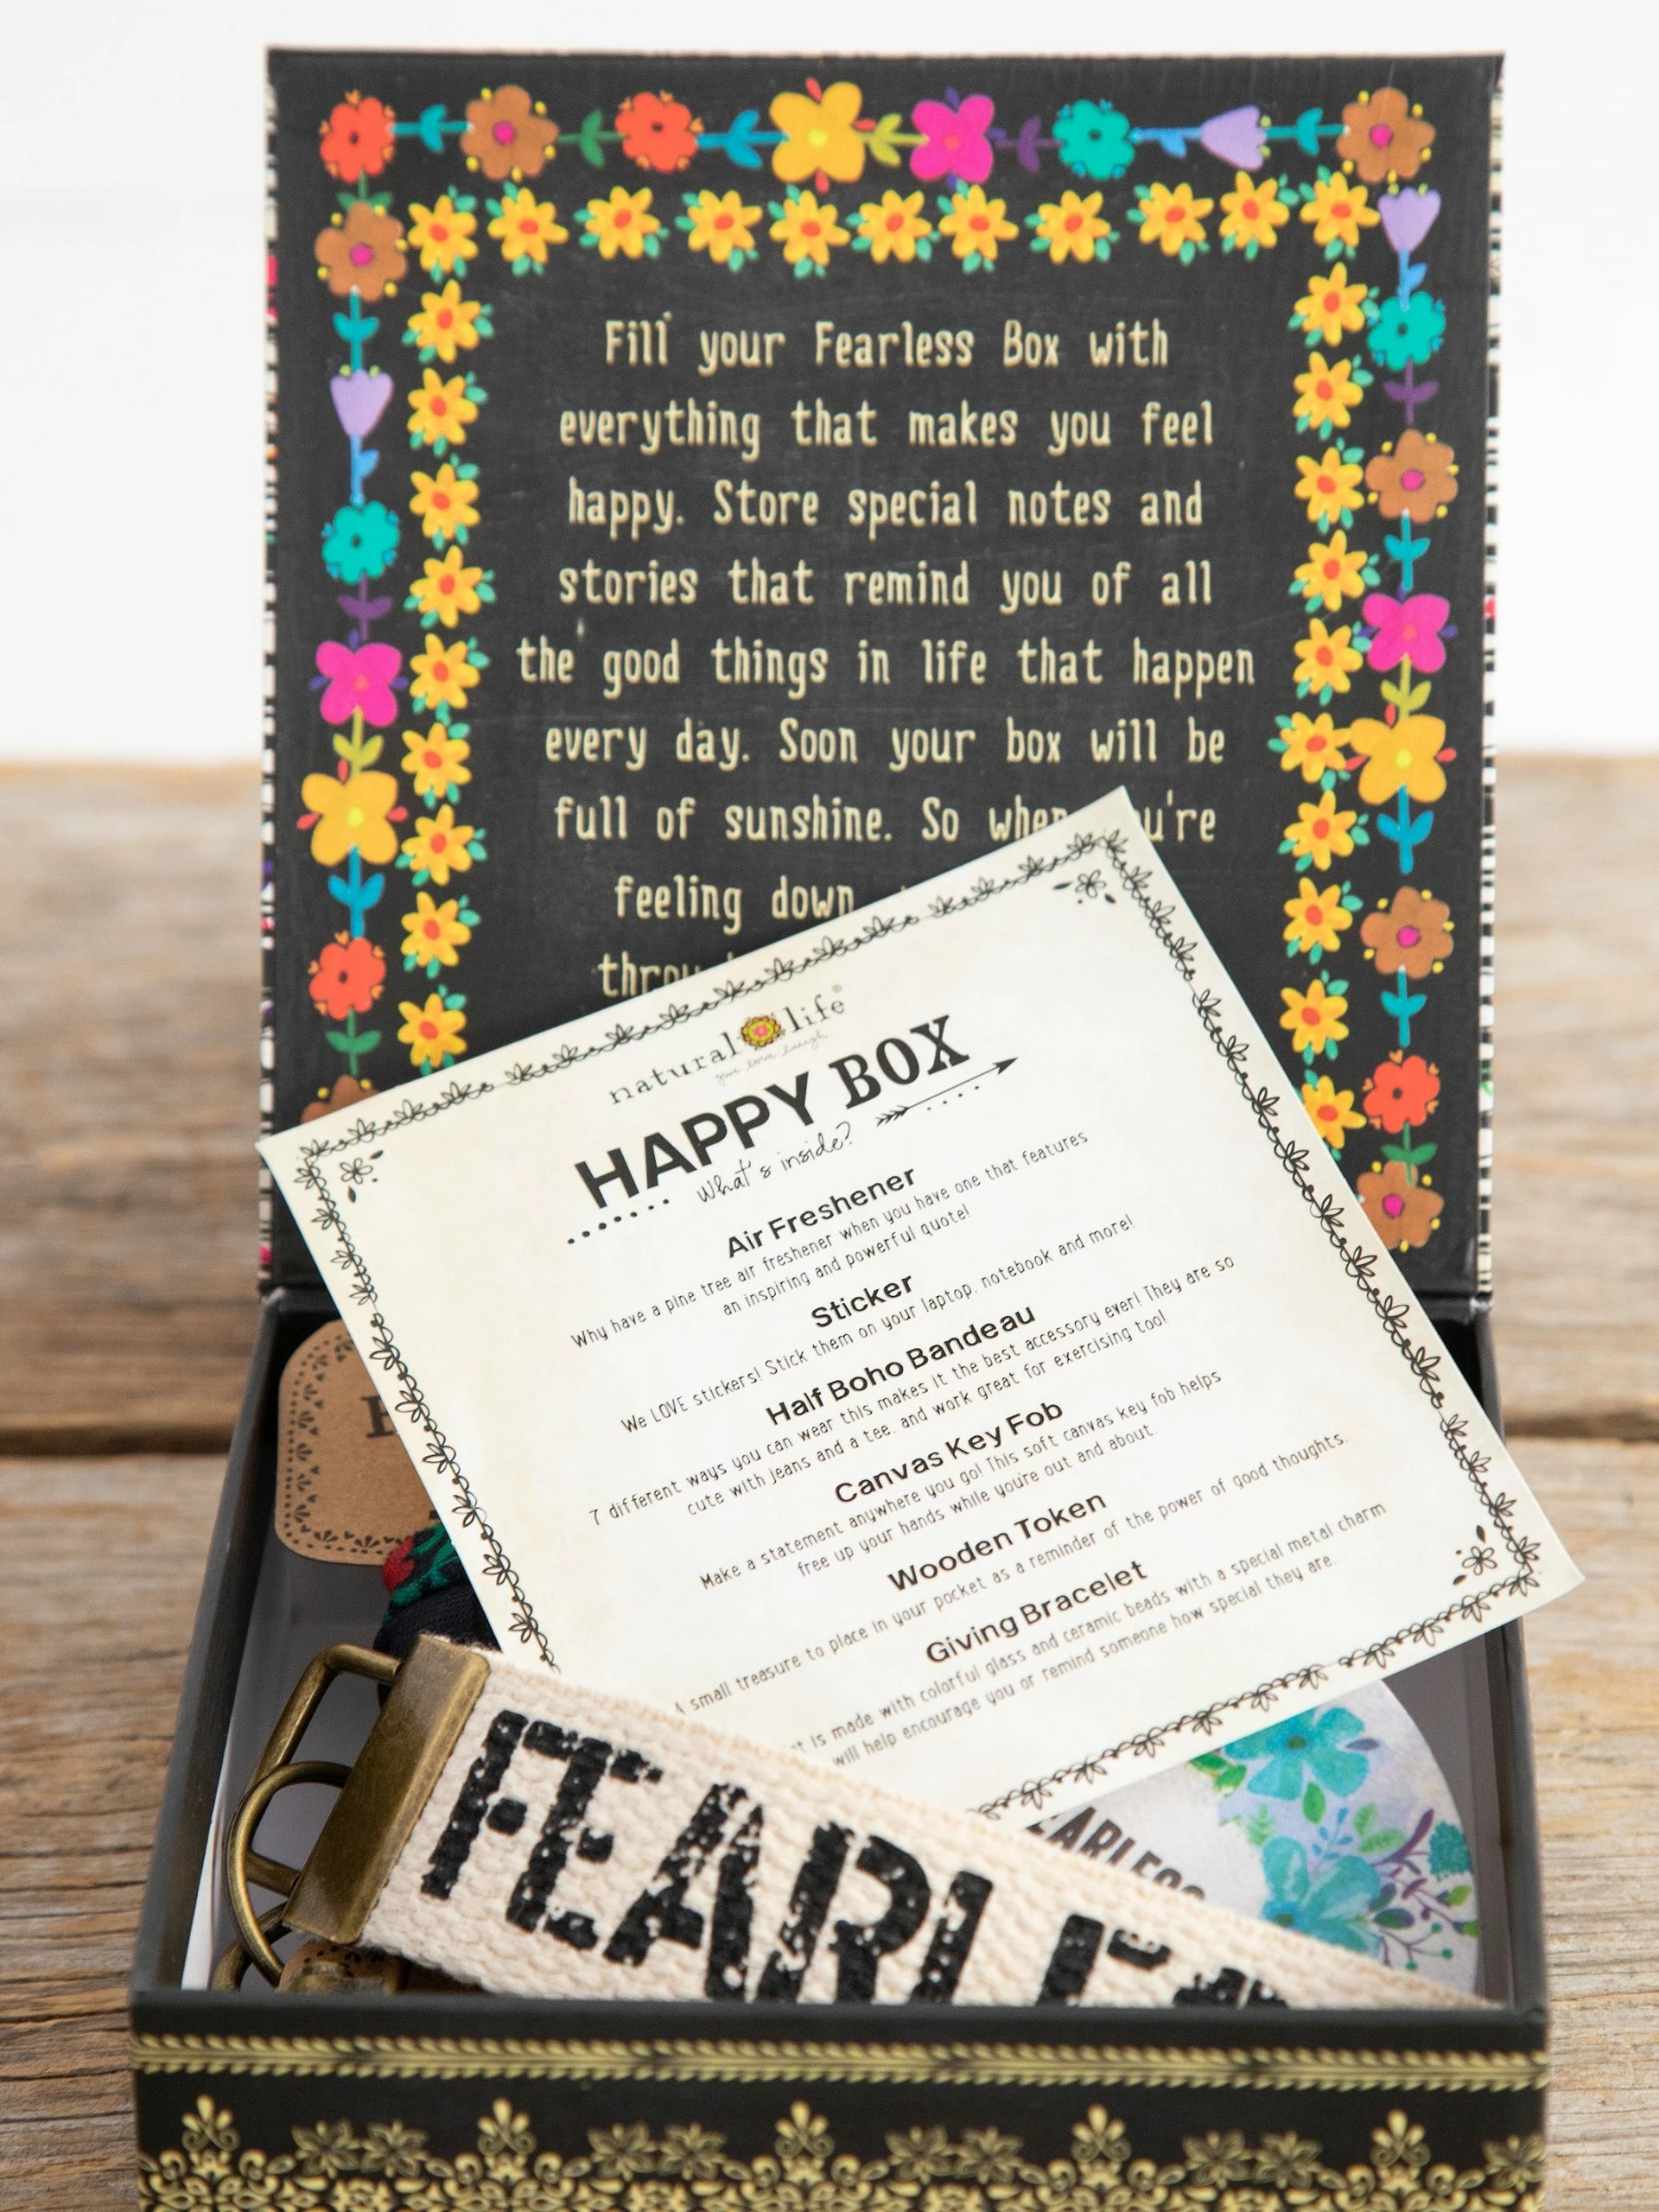 Fill your Fearless Box with
everything that makes you feel
happy. Store special notes and
stories that remind you of all
the good things in life that happen
every day. Soon your box will be
full of sunshine. So when you're
feeling down
natural life®
give love laugh
HAPPY BOX
What's inside?
Air Freshener
Why have a pine tree air freshener when you have one that features
an inspiring and powerful quote!
Sticker
We LOVE stickers! Stick them on your laptop, notebook and more!
Half Boho Bandeau
7 different ways you can wear this makes it the best accessory ever! They are so
cute with jeans and a tee, and work great for exercising too!
Canvas Key Fob
Make a statement anywhere you go! This soft canvas key fob helps
free up your hands while you're out and about.
Wooden Token
A small treasure to place in your pocket as a reminder of the power of good thoughts.
Giving Bracelet
is made with colorful glass and ceramic beads with a special metal charm
will help encourage you or remind someone how special they are.
FEARLES
EARLESS